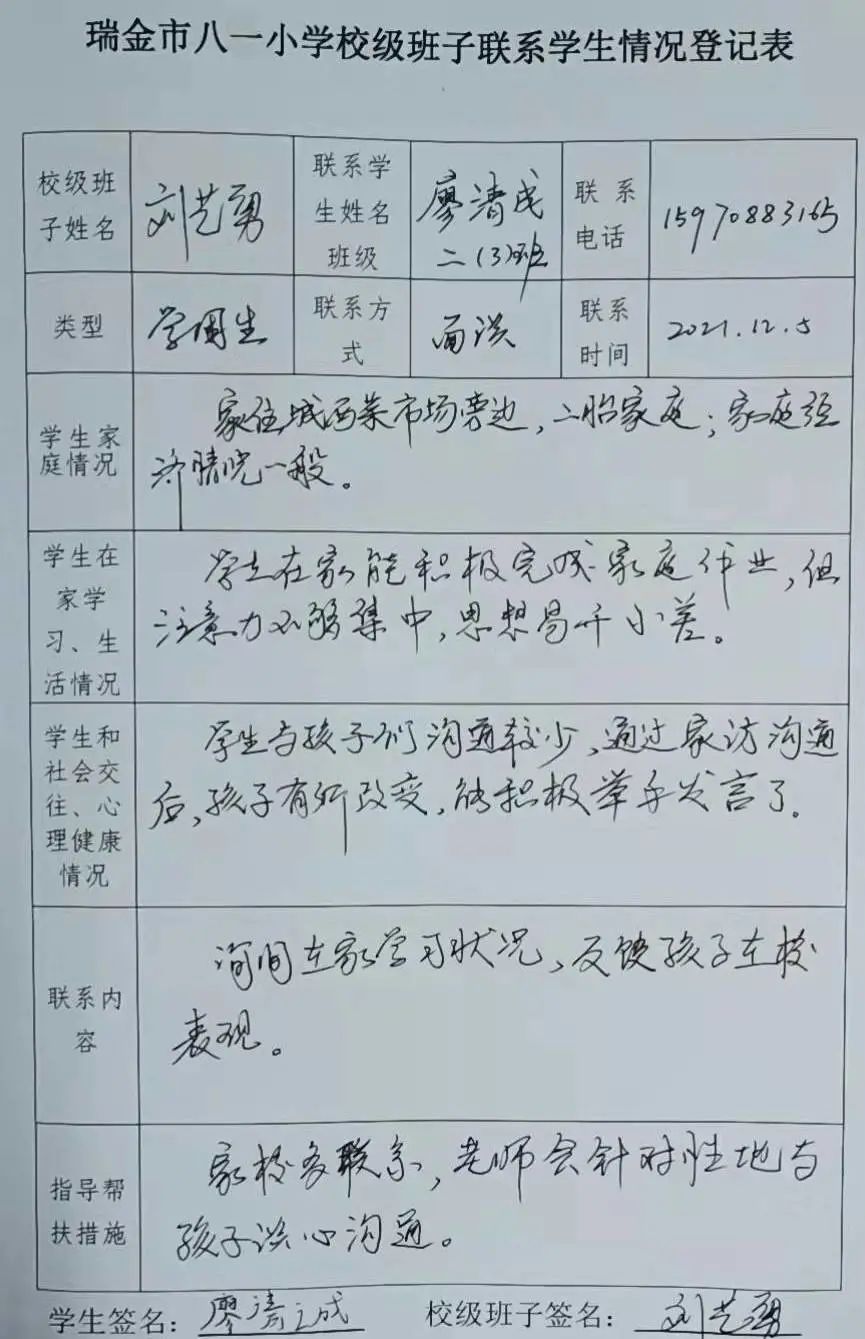 瑞金市八一小学校级班子联系学生情况登记表
校级班
子姓名
刘艺勇
联系学
生姓名
班级
廖清成
二(3)班
联系
电话
15970883165
类型
学困生
联系方
式
面谈
联系
时间
2021.12.5
学生家
庭情况
家住城西菜市场旁边,二胎家庭;家庭经
济情况一般。
学生在
家学
习、生
活情况
学生在家能积极完成家庭作业,但
注意力不够集中,思想易开小差。
学生和
社会交
往、心
理健康
情况
学生与孩子们沟通较少,通过家访沟通
后,孩子有所改变,能积极举手发言了。
联系内
容
询问在家学习状况,反馈孩子在校
表现。
指导帮
扶措施
家校多联系,老师会针对性地与
孩子谈心沟通。
学生签名:廖清成 校级班子签名:刘艺勇